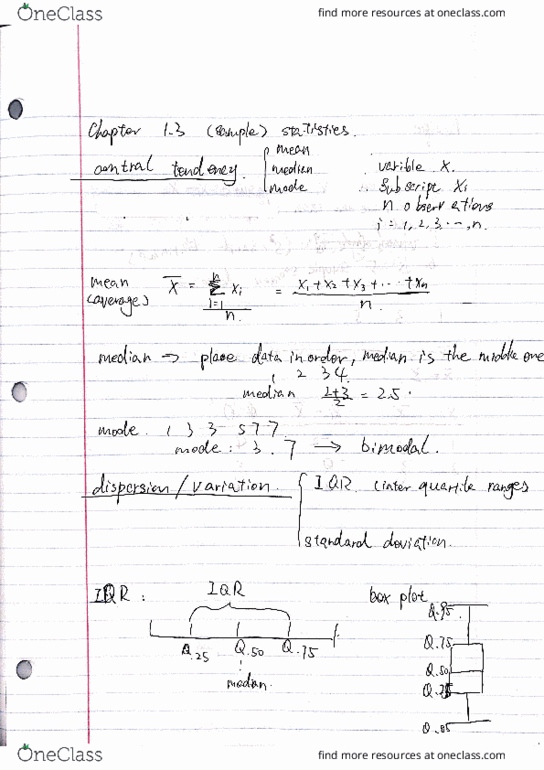 OneClass
find more resources at oneclass.com
Chapter 1.3 (sample) statistics.
central tendency. { mean
median
mode
varible X.
Subscripe Xi
n observations
i = 1, 2, 3, ..., n.
mean (average) X̄ = Σ(i=1 to n) xi / n. = (x1 + x2 + x3 + ... + xn) / n.
median → place data in order, median is the middle one
1 2 3 4.
median (2+3)/2 = 2.5.
mode. 1 3 3 5 7 7
mode: 3. 7 → bimodal.
dispersion / variation. { IQR (inter quartile ranges
standard deviation.
IQR:
IQR
Q.25 Q.50 Q.75
median.
box plot
Q.95
Q.75
Q.50
Q.25
Q.05
OneClass
find more resources at oneclass.com